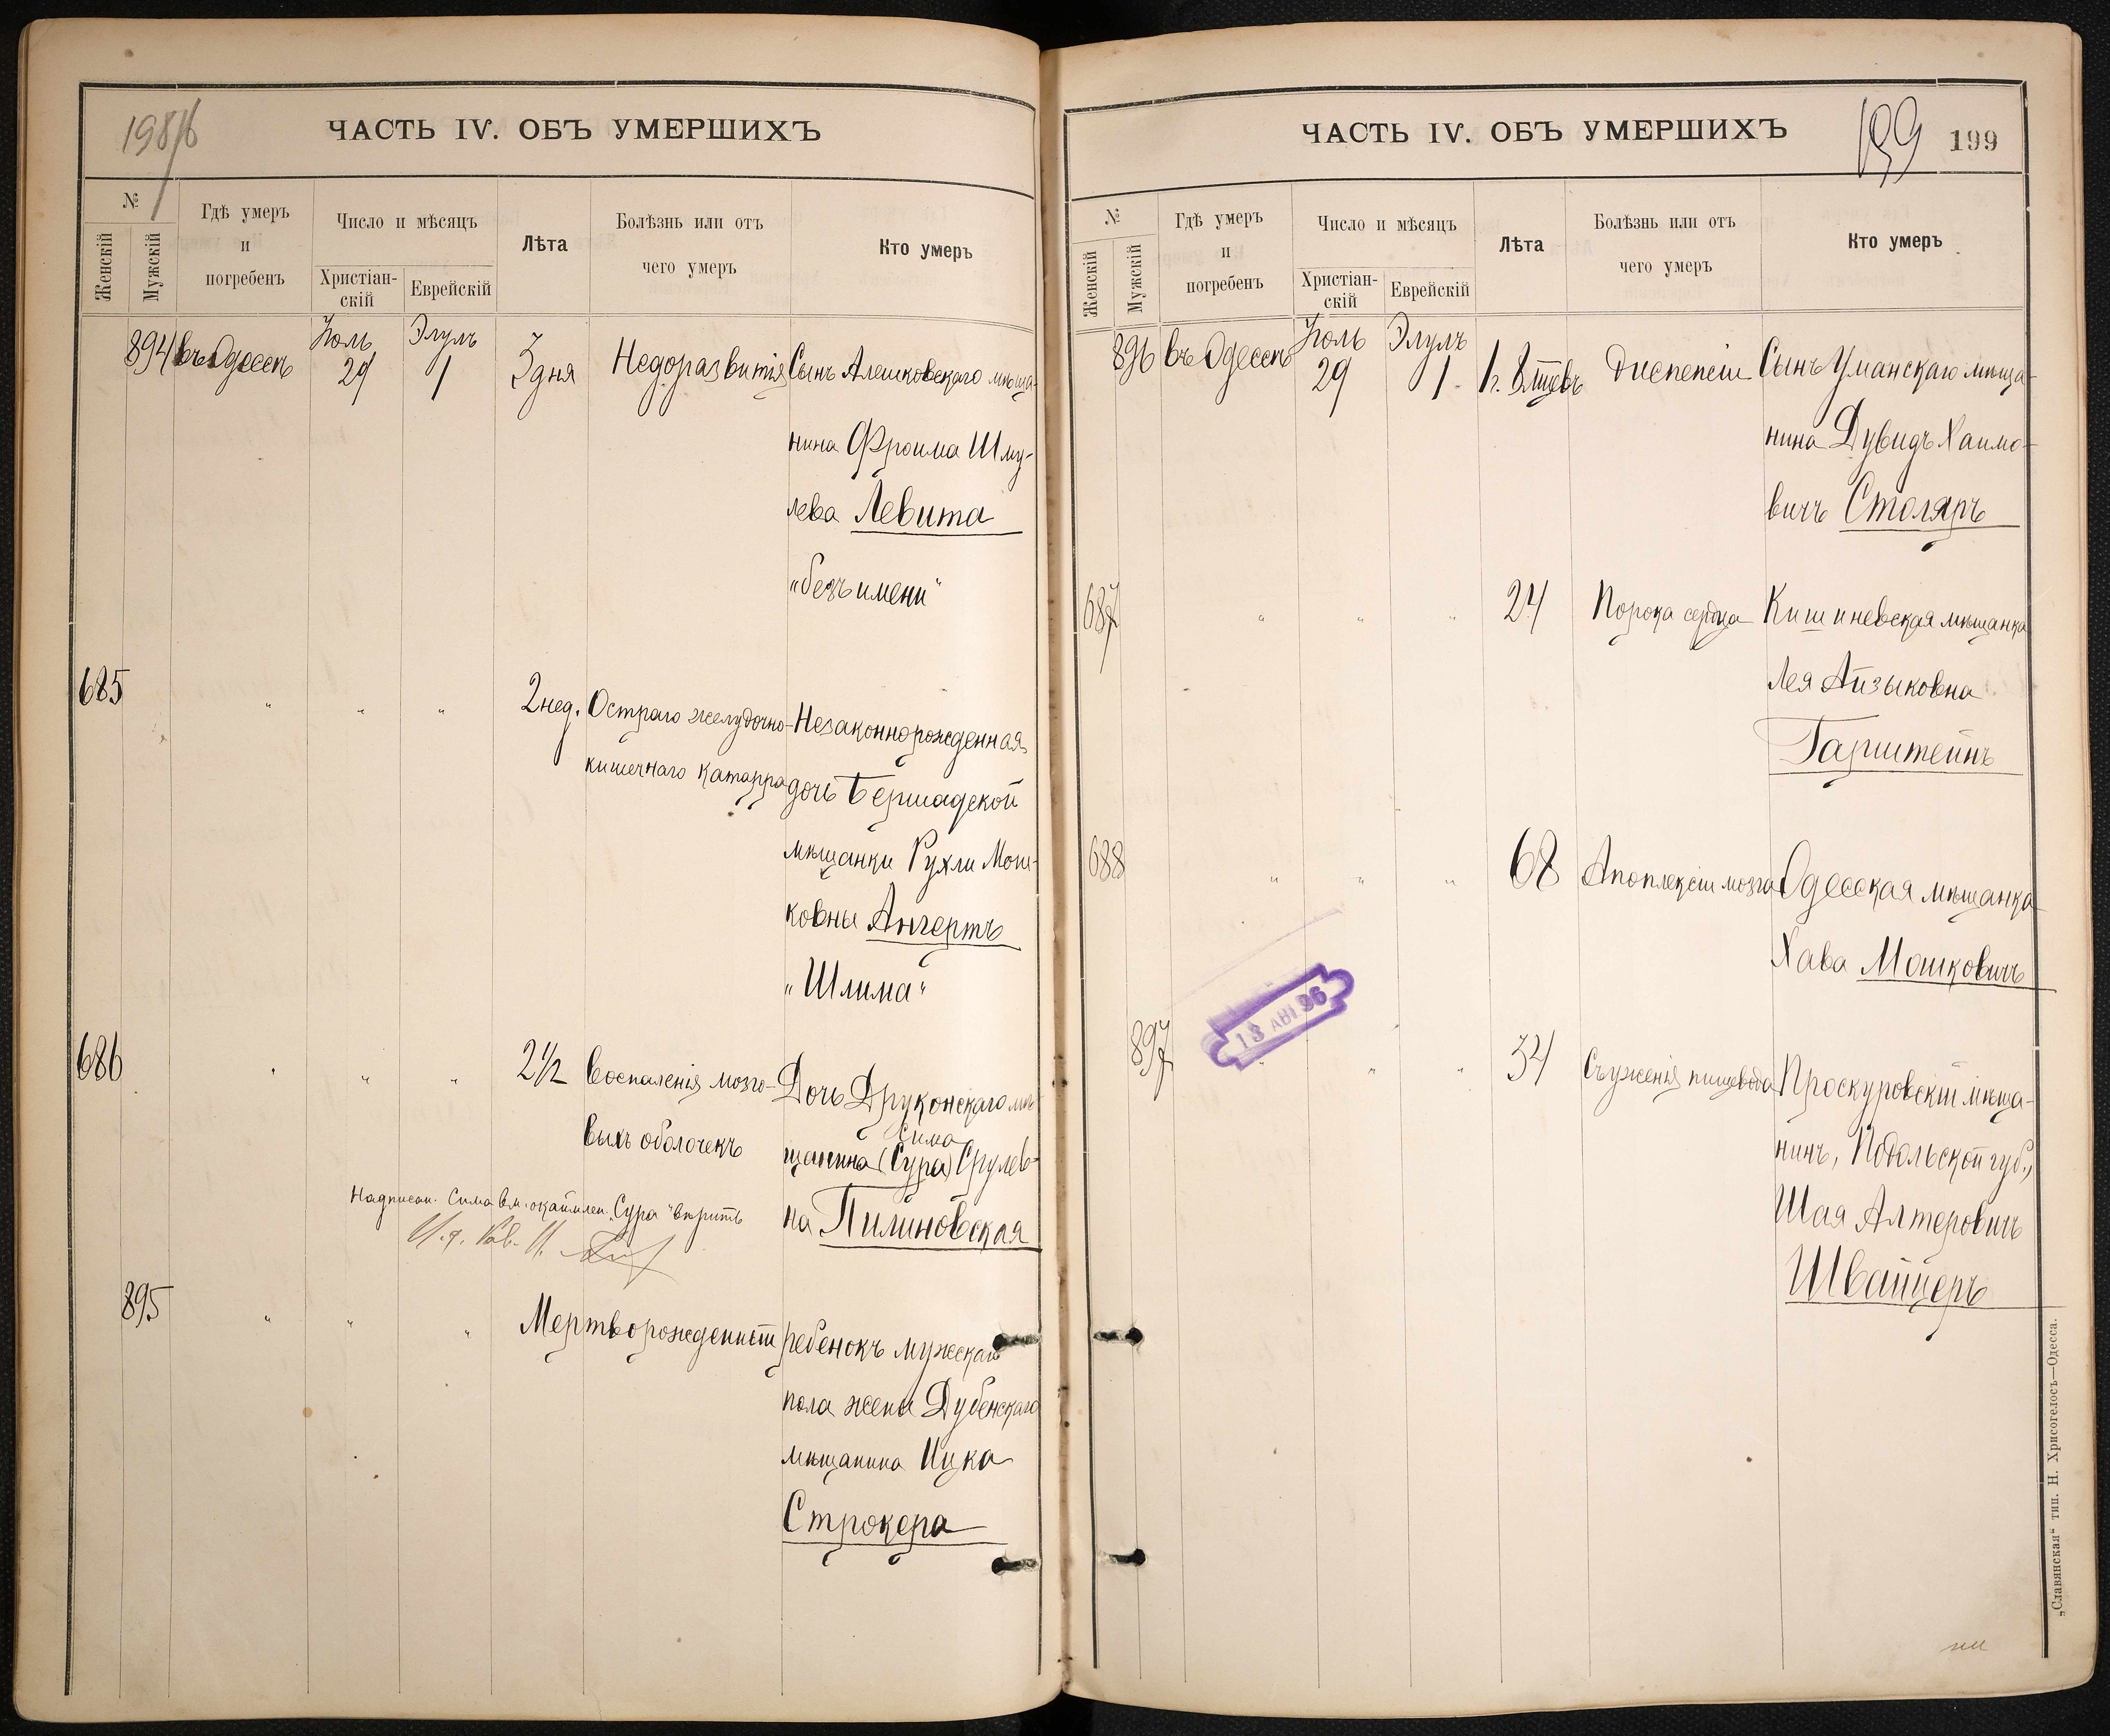 198/б
ЧАСТЬ IV. ОБЪ УМЕРШИХЪ
№
Женскій
Мужскій
Гдѣ умеръ
и
погребенъ
Число и мѣсяцъ
Христіан-
скій
Еврейскій
Лѣта
Болѣзнь или отъ
чего умеръ
Кто умеръ
Іюль Элулъ
894 въ Одессѣ 29 1 3 дня Недоразвитія Сынъ Алешковскаго мѣща-
нина Фроима Шму-
лева Левита
"безъ имени"
685 " " " 2 нед. Остраго желудочно- Незаконнорожденная
кишечнаго катарра дочь Бершадской
мѣщанки Рухли Мош-
ковны Ангертъ
"Шлима"
686 " " " 2 1/2 Воспаленія мозго- Дочь Друконскаго мѣ-
выхъ оболочекъ
Сима
щанина (Сура) Срулев-
на Пилиновская
Надписан. Сима вм. окаймлен. "Сура" вѣрить
895 " " " Мертворожденный ребенокъ мужскаго
пола жены Дубенскаго
мѣщанина Ицка
Строкера
ЧАСТЬ IV. ОБЪ УМЕРШИХЪ
199 199
№
Женскій
Мужскій
Гдѣ умеръ
и
погребенъ
Число и мѣсяцъ
Христіан-
скій
Еврейскій
Лѣта
Болѣзнь или отъ
чего умеръ
Кто умеръ
Іюль Элулъ
896 въ Одессѣ 29 1. 1 г. 8 мцевъ Диспепсіи Сынъ Уманскаго мѣща-
нина Дувидъ Хаимо-
вичъ Столяръ
687 " " " 24 Порока сердца Кишиневская мѣщанка
Лея Айзыковна
Гарштейнъ
688 " " " 68 Апоплексіи мозга Одесская мѣщанка
Хава Мошковичъ
13 АВГ 96
897 " " " 54 Съуженія пищевода Проскуровскій мѣща-
нинъ, Подольской губ.,
Шая Алтеровичъ
Швайцеръ
„Славянская" тип. Н. Хрисогелосъ—Одесса.